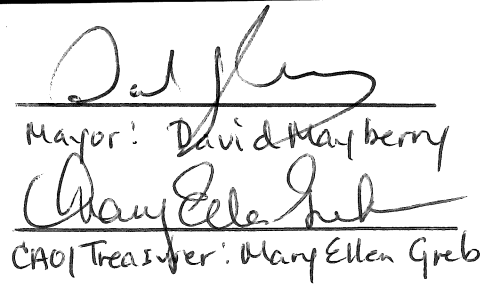 Mayor: David Mayberry
Mary Ellen Greb
CAO/Treasurer: Mary Ellen Greb